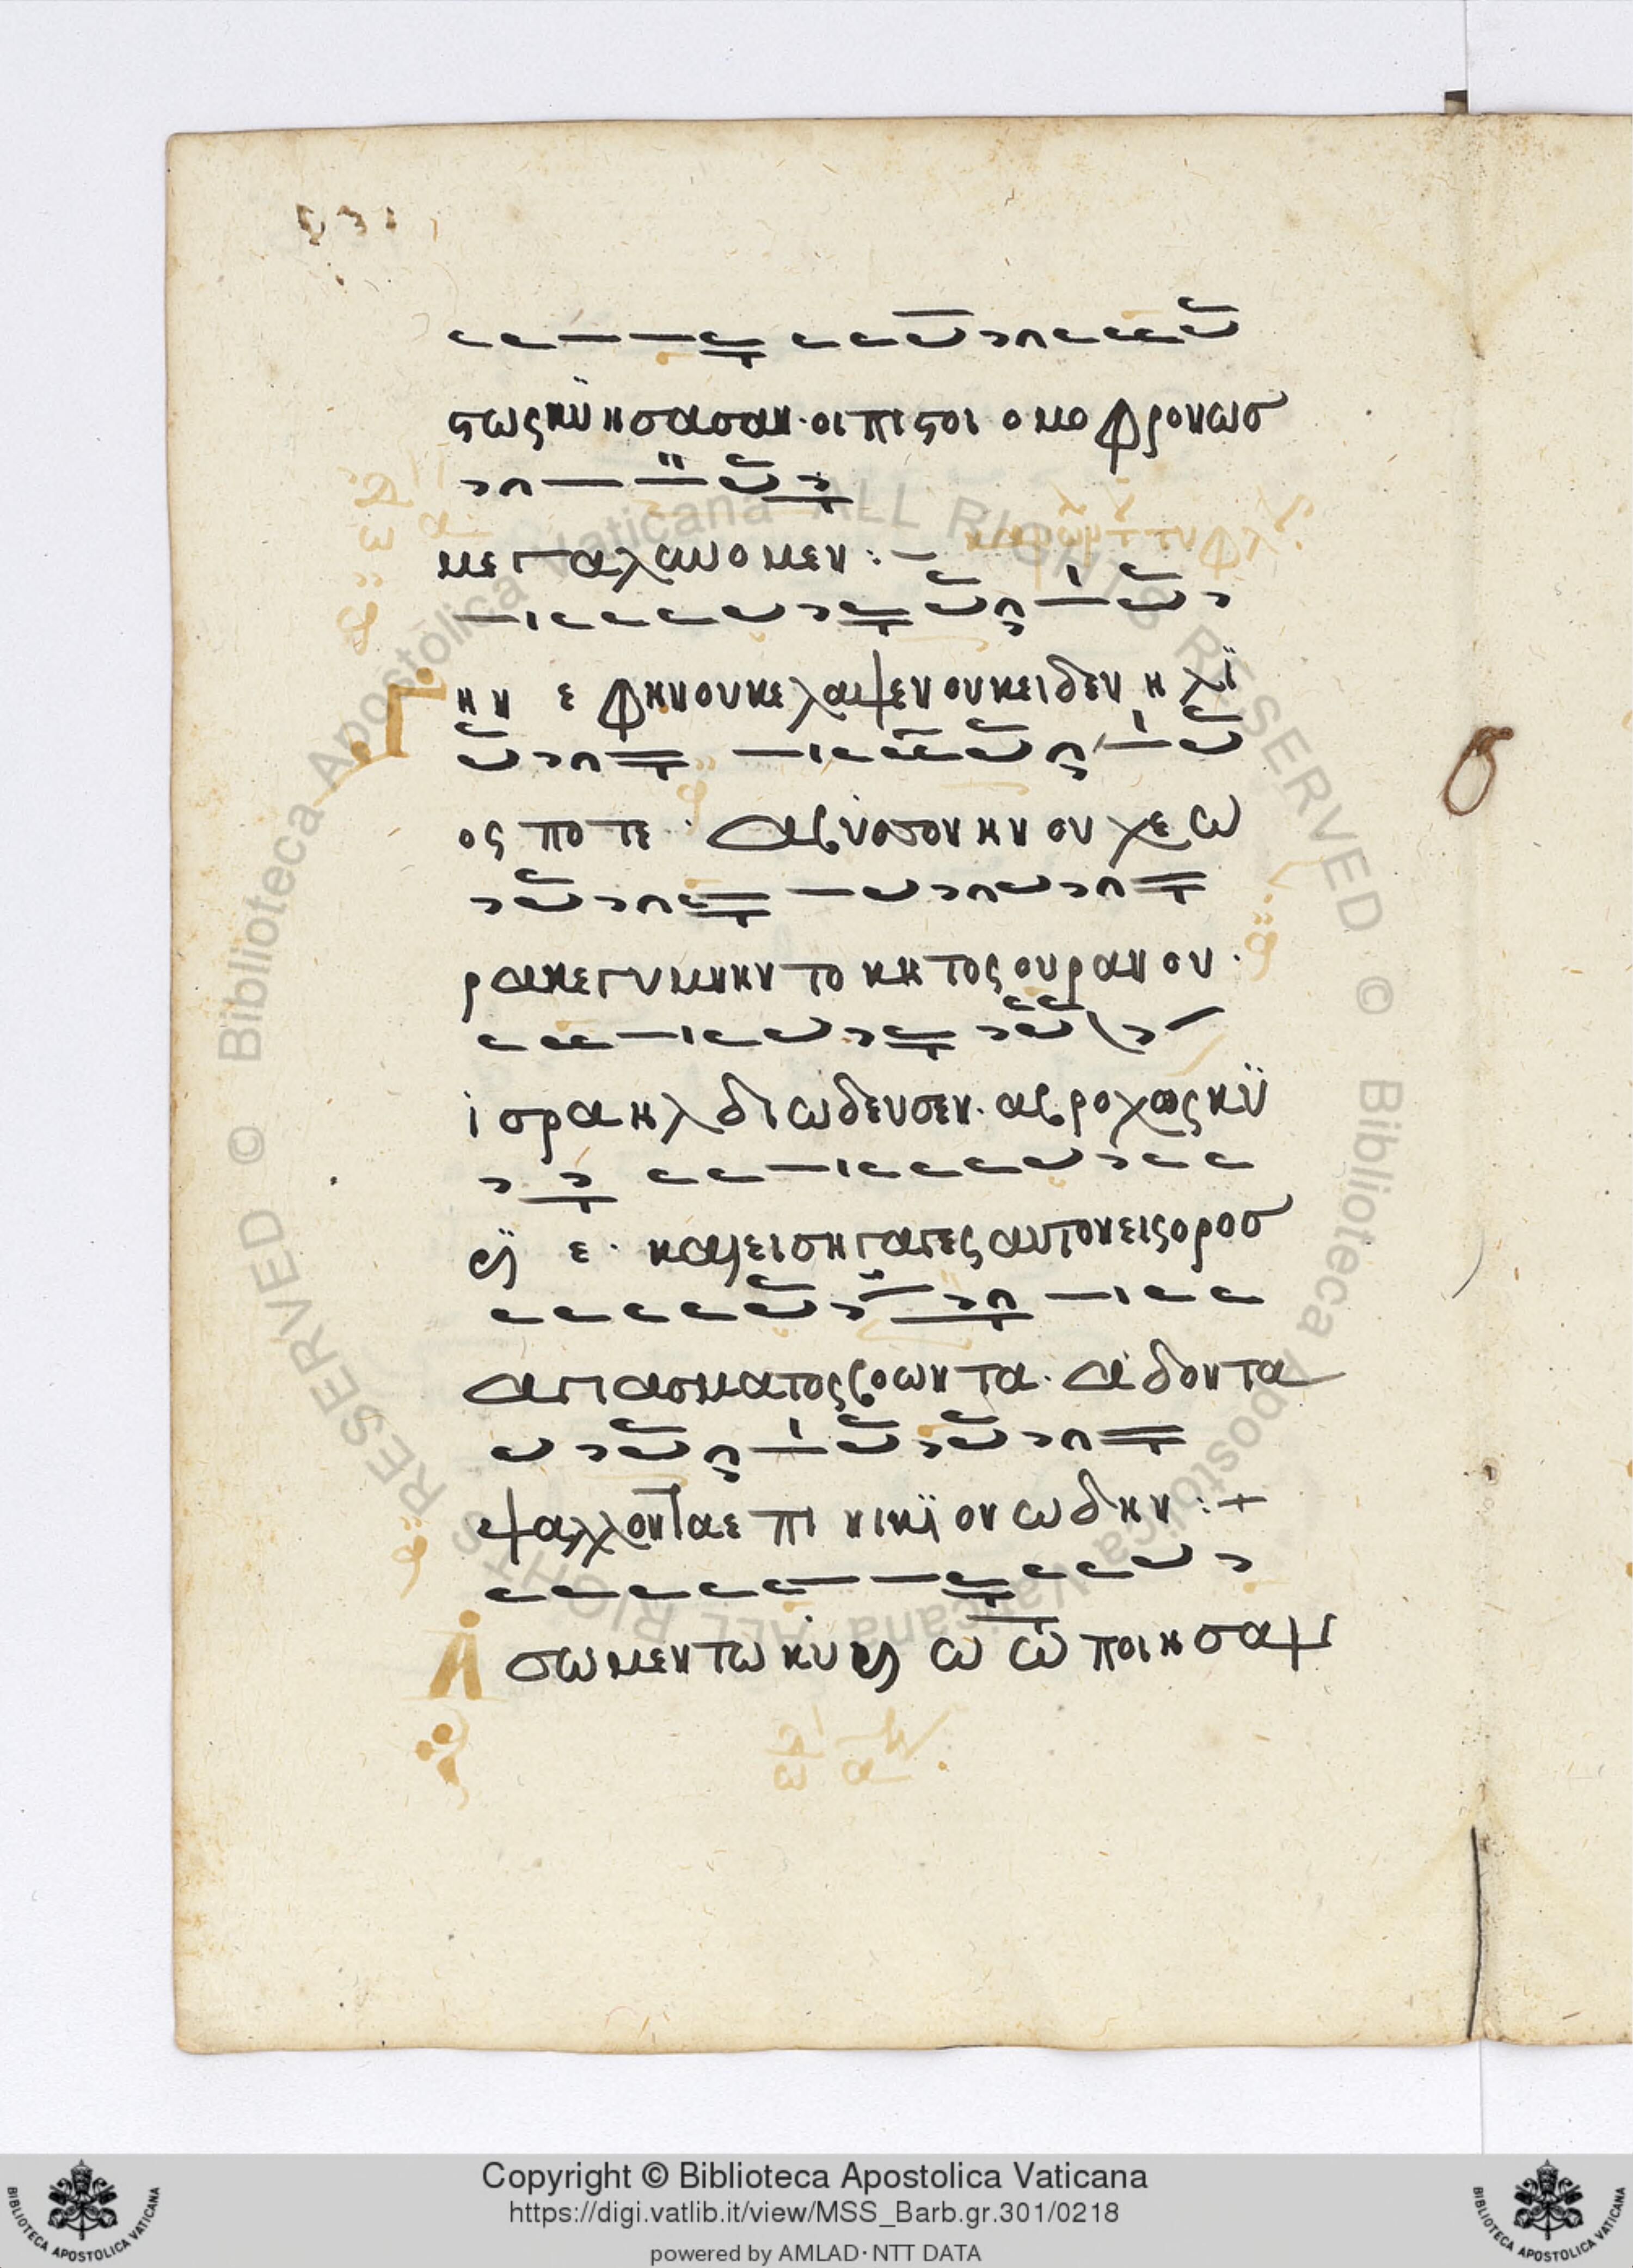 στως κϋησασαν· οι πιστοι ομοφρονωσ
μεγαλυνομεν :–
Γην εφ ην ουκ ελαμψεν ουκ ειδεν ηλϊ
ος ποτε· αβυσσον ην ου χεω
ρακε γυμνην το κητος ουρανου·
ισραηλ διωδευσεν· αβροχως κϋ
ριε· και εισηγαγες αυτον εις οροσ
αγιασματος βοωντα· αδοντα
ψαλλοντα επινικϊον ωδην :+
Ασωμεν τω κυριω ω τω ποιησαντι
Copyright © Biblioteca Apostolica Vaticana
https://digi.vatlib.it/view/MSS_Barb.gr.301/0218
powered by AMLAD·NTT DATA
BIBLIOTECA APOSTOLICA VATICANA
BIBLIOTECA APOSTOLICA VATICANA
© Biblioteca Apostolica Vaticana ALL RIGHTS RESERVED
© Biblioteca Apostolica Vaticana ALL RIGHTS RESERVED